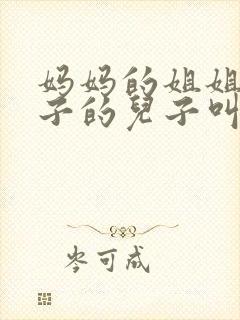 妈妈的姐姐
子的兒子叫
岑可成